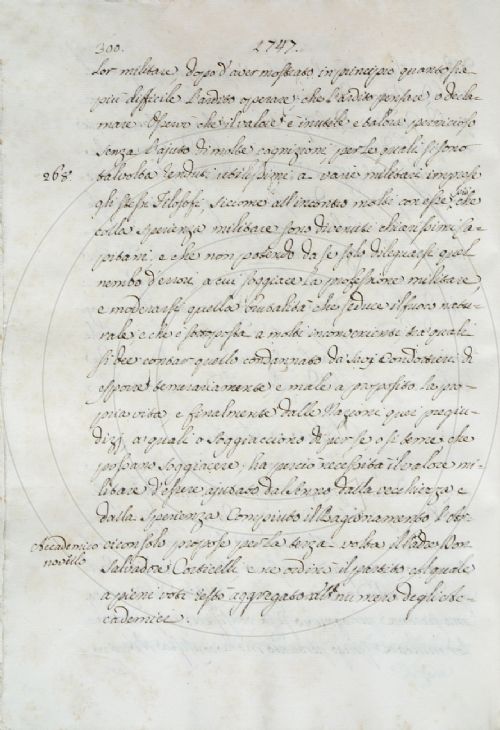 300. 1747.
lor militare, dopo d'aver mostrato in principio quanto sia
più difficile l'ardito operare, che l'ardito pensare, o decla-
mare. Osservò che il valore è inutile e talora pernicioso
senza l'ajuto di molte cognizioni, per le quali si sono
268. talvolta renduti utilissimi a varie militari imprese
gli stessi Filosofi, siccome all'incontro molti con esse, che
colla sperienza militare sono divenuti chiarissimi ca-
pitani, e che non potendo da se solo dileguarsi quel
nembo d'errori, a cui soggiace la professione militare,
e moderarsi quella brutalità che seduce il fuoco natu-
rale e che è sottoposta a molti inconvenienti tra quali
si dee contar quello condannato da Saggi Condottieri di
esporre temerariamente e male a proposito la pro-
pria vita e finalmente dalle Nazione quei pregiu-
dizj, a quali o soggiacciono di per se o si teme che
possano soggiacere, ha perciò necessità il valore mi-
litare d'essere ajutato dal senno dalla vecchiezza e
dalla sperienza. Compiuto il Ragionamento l'
Accademico novello viconsolo propose per la terza volta il Padre Don
Salvadore Corticelli e ne ordinò il partito col quale
a pieni voti restò aggregato al numero degli Ac-
cademici.